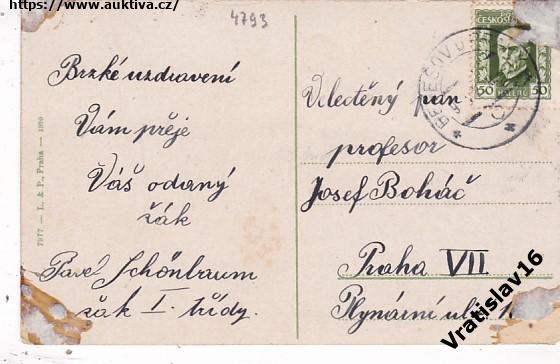 https://www.auktiva.cz/
4793
Brzké uzdravení
Vám přeje
Váš odaný
žák
Pavel Schönbaum
žák I. třídy.
7977 — L. & P., Praha — 1910
ČESKOS
50 HALÉŘŮ 50
BENEŠOV U
Veledtěný pan
profesor
Josef Boháč
Praha VII
Plynární ul.
Vratislav16